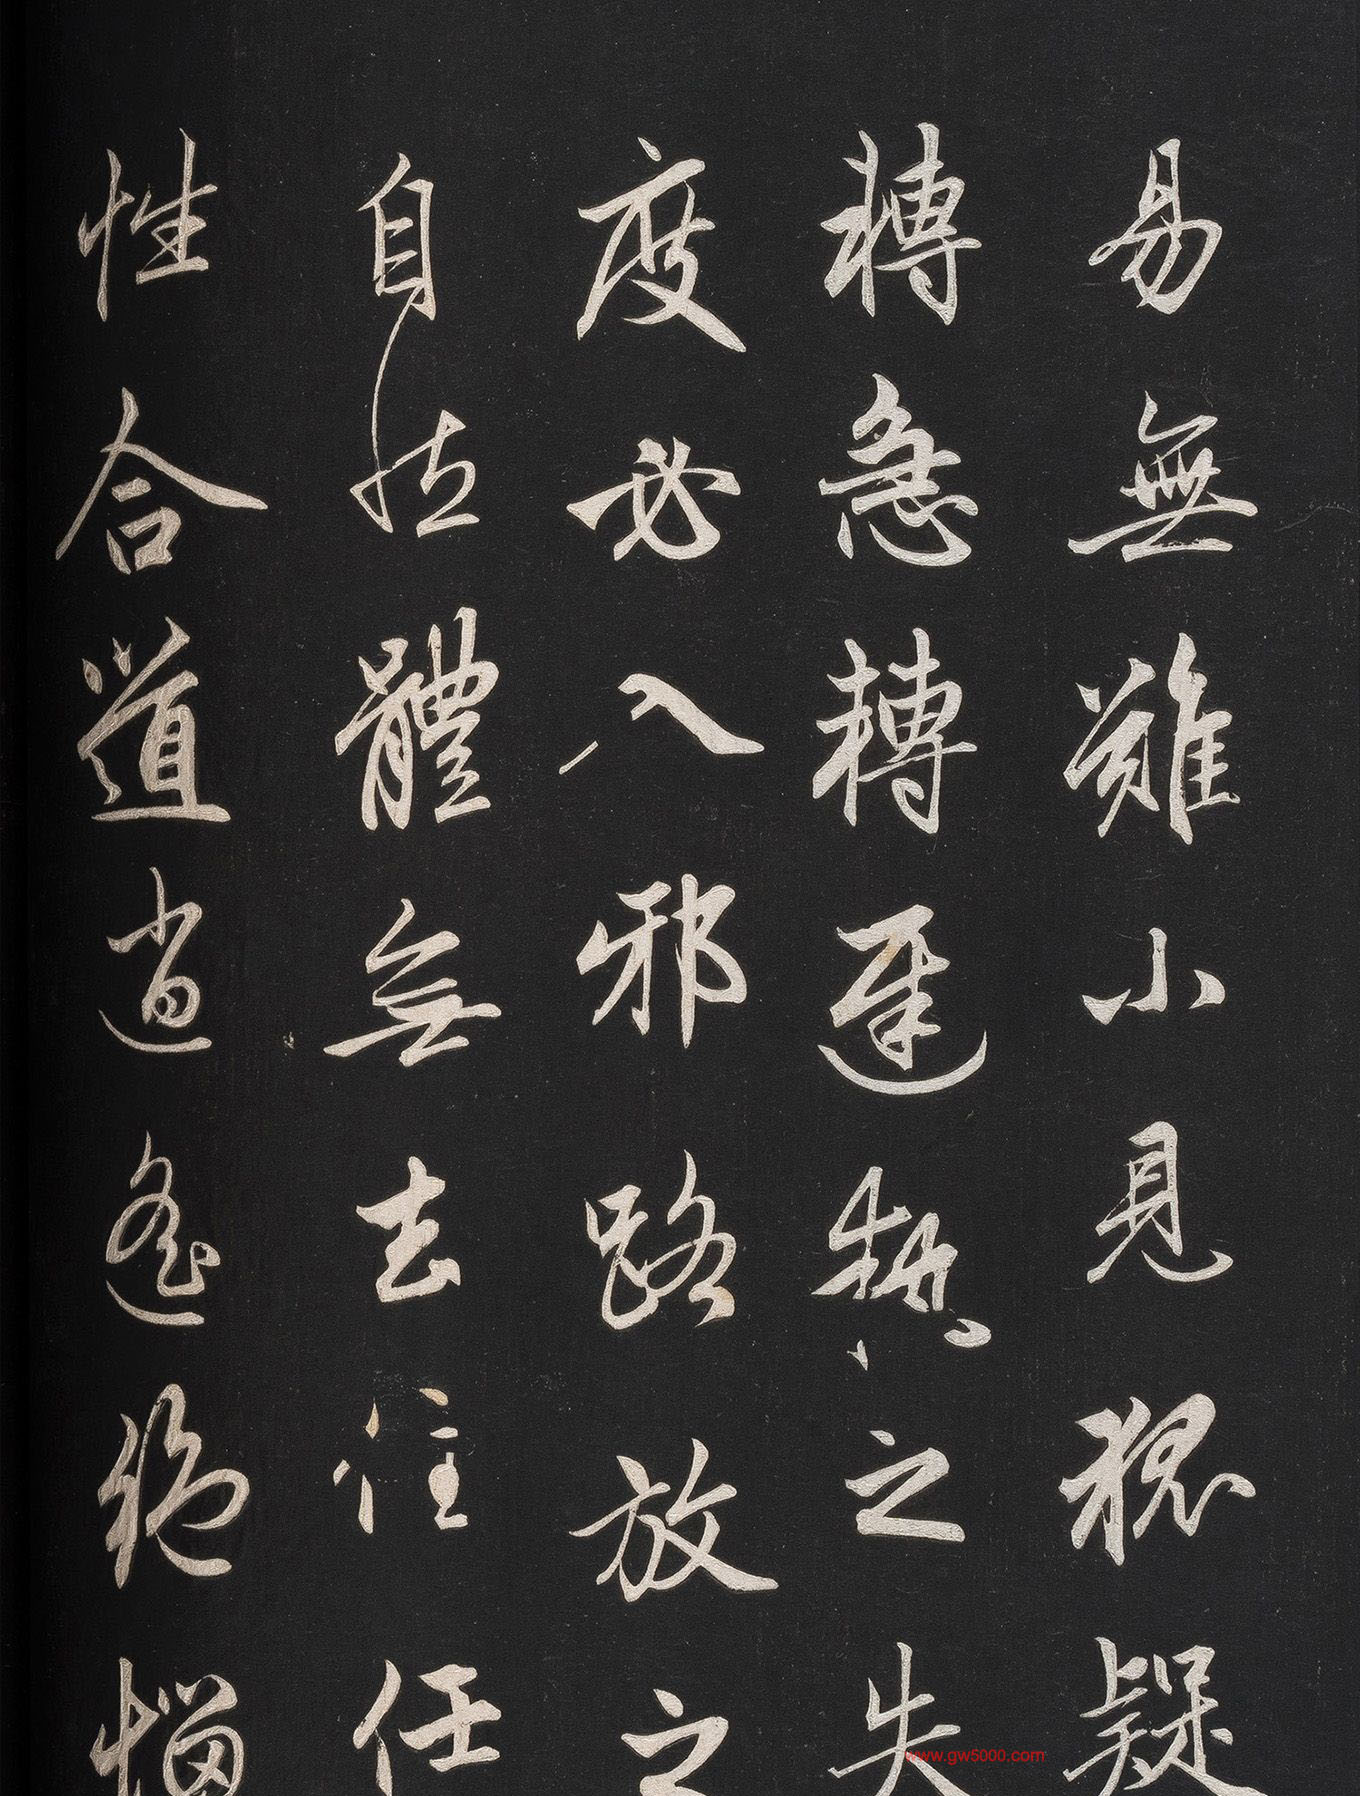 易無難小見狐疑
轉急轉遲執之失
度必入邪路放之
自然體無去住任
性合道逍遙絕惱
www.gw5000.com